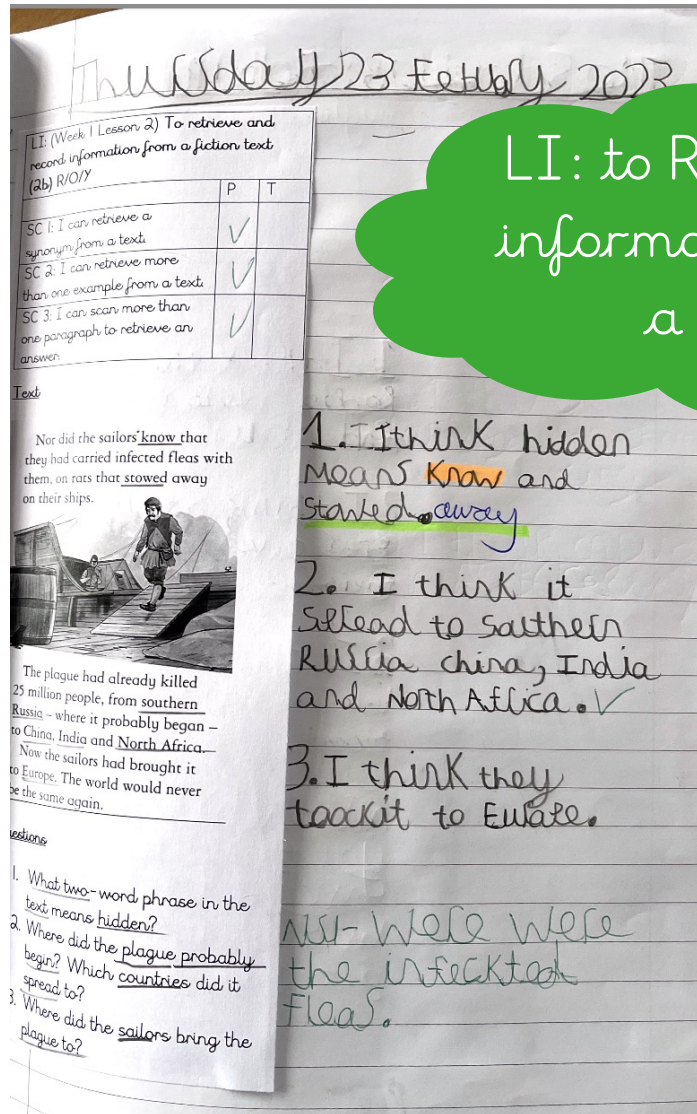 Thursday 23 Febuary 2023
LI: to R
informa
a
LI: (Week 1 Lesson 2) To retrieve and
record information from a fiction text
(2b) R/O/Y
P T
SC 1: I can retrieve a
synonym from a text.
SC 2: I can retrieve more
than one example from a text.
SC 3: I can scan more than
one paragraph to retrieve an
answer.
Text
Nor did the sailors know that
they had carried infected fleas with
them, on rats that stowed away
on their ships.
The plague had already killed
25 million people, from southern
Russia – where it probably began –
to China, India and North Africa.
Now the sailors had brought it
to Europe. The world would never
be the same again.
estions
1. What two-word phrase in the
text means hidden?
2. Where did the plague probably
begin? Which countries did it
spread to?
3. Where did the sailors bring the
plague to?
1. I Ithink hidden
means know and
stowed. away
2. I think it
spread to southern
Russia china, India
and North Africa.
3. I think they
toockit to Europe.
were were
the infeckted
fleas.